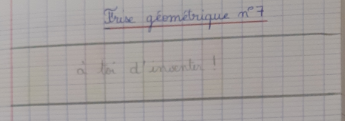 Frise géométrique n°7
à toi d'inventer !